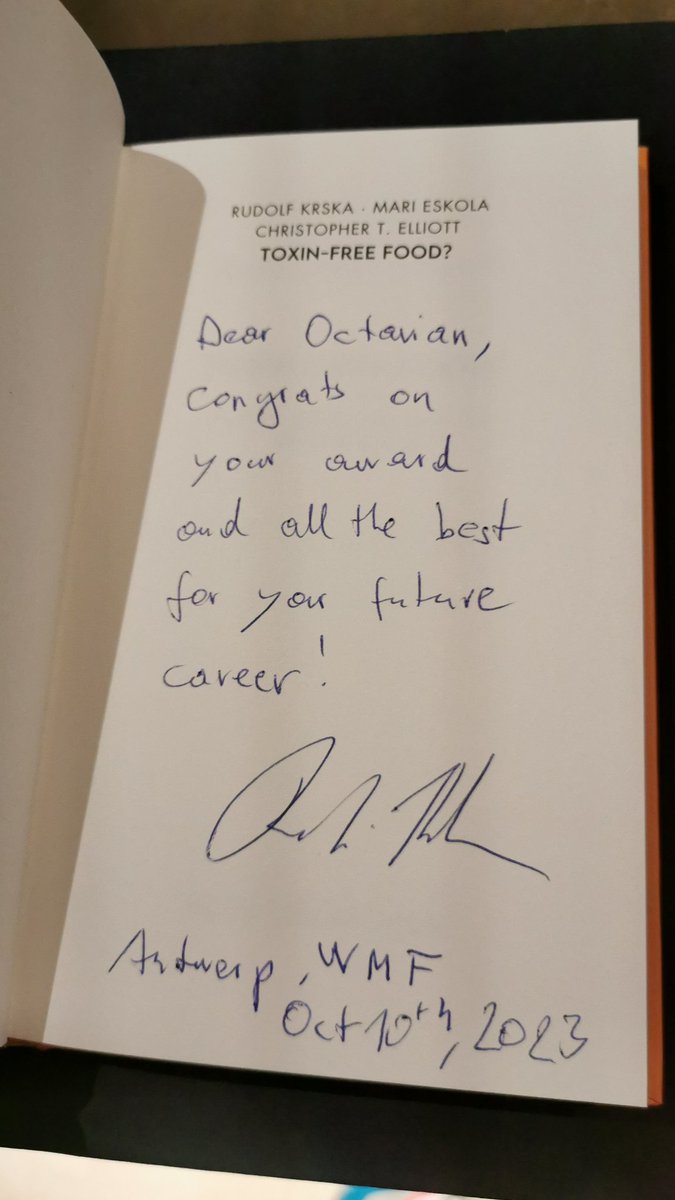 RUDOLF KRSKA · MARI ESKOLA
CHRISTOPHER T. ELLIOTT
TOXIN-FREE FOOD?
Dear Octavian,
Congrats on
your award
and all the best
for your future
career!
Antwerp, WMF
Oct 10th, 2023